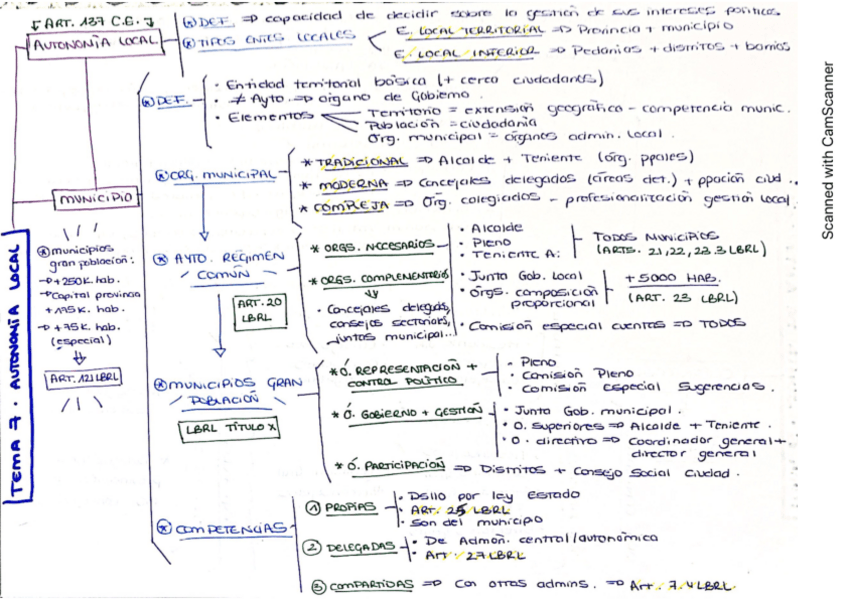 TEMA 7. AUTONOMÍA LOCAL
↓ ART. 137 C.E. ↓
AUTONOMÍA LOCAL
* DEF. ⇒ capacidad de decidir sobre la gestión de sus intereses políticos
* TIPOS ENTES LOCALES
E. LOCAL TERRITORIAL ⇒ Provincia + municipio
E. LOCAL INFERIOR ⇒ Pedanías + distritos + barrios
MUNICIPIO
* municipios
gran población:
→ +250K. hab.
→ Capital provincia
+175K. hab.
→ +75K. hab.
(especial)
ART. 121 LBRL
* DEF.
· Entidad territorial básica (+ cerca ciudadanos)
· ≠ Ayto. ⇒ órgano de Gobierno.
· Elementos
Territorio = extensión geográfica - competencia munic.
Población = ciudadanía
Org. municipal = órganos admin. local.
* ORG. MUNICIPAL
* TRADICIONAL ⇒ Alcalde + Teniente (órg. ppales)
* MODERNA ⇒ Concejales delegados (áreas det.) + ppación ciud...
* COMPLEJA ⇒ Órg. colegiados - profesionalización gestión local.
* AYTO. RÉGIMEN
COMÚN
ART. 20
LBRL
* ORGS. NECESARIOS
· Alcalde
· Pleno
· Teniente A.
TODOS MUNICIPIOS
(ARTS. 21, 22, 23.3 LBRL)
* ORGS. COMPLEMENTARIOS
· Concejales delegads,
consejos sectoriales,
juntas municipal...
· Junta Gob. Local
· Órgs. composición
proporcional
+5000 HAB.
(ART. 23 LBRL)
· Comisión especial cuentas ⇒ TODOS
* MUNICIPIOS GRAN
POBLACIÓN
LBRL TÍTULO X
* Ó. REPRESENTACIÓN +
CONTROL POLÍTICO
· Pleno
· Comisión Pleno
· Comisión Especial Sugerencias.
* Ó. GOBIERNO + GESTIÓN
· Junta Gob. municipal.
· O. Superiores ⇒ Alcalde + Teniente.
· O. directivo ⇒ Coordinador general +
director general
* Ó. PARTICIPACIÓN ⇒ Distritos + Consejo Social Ciudad.
* COMPETENCIAS
① PROPIAS
· Dsllo por ley Estado
· ART. 25 LBRL
· Son del municipo
② DELEGADAS
· De Admón. central/autonómica
· Art. 27 LBRL
③ COMPARTIDAS ⇒ Con otras admins. ⇒ Art. 7.4 LBRL.
Scanned with CamScanner